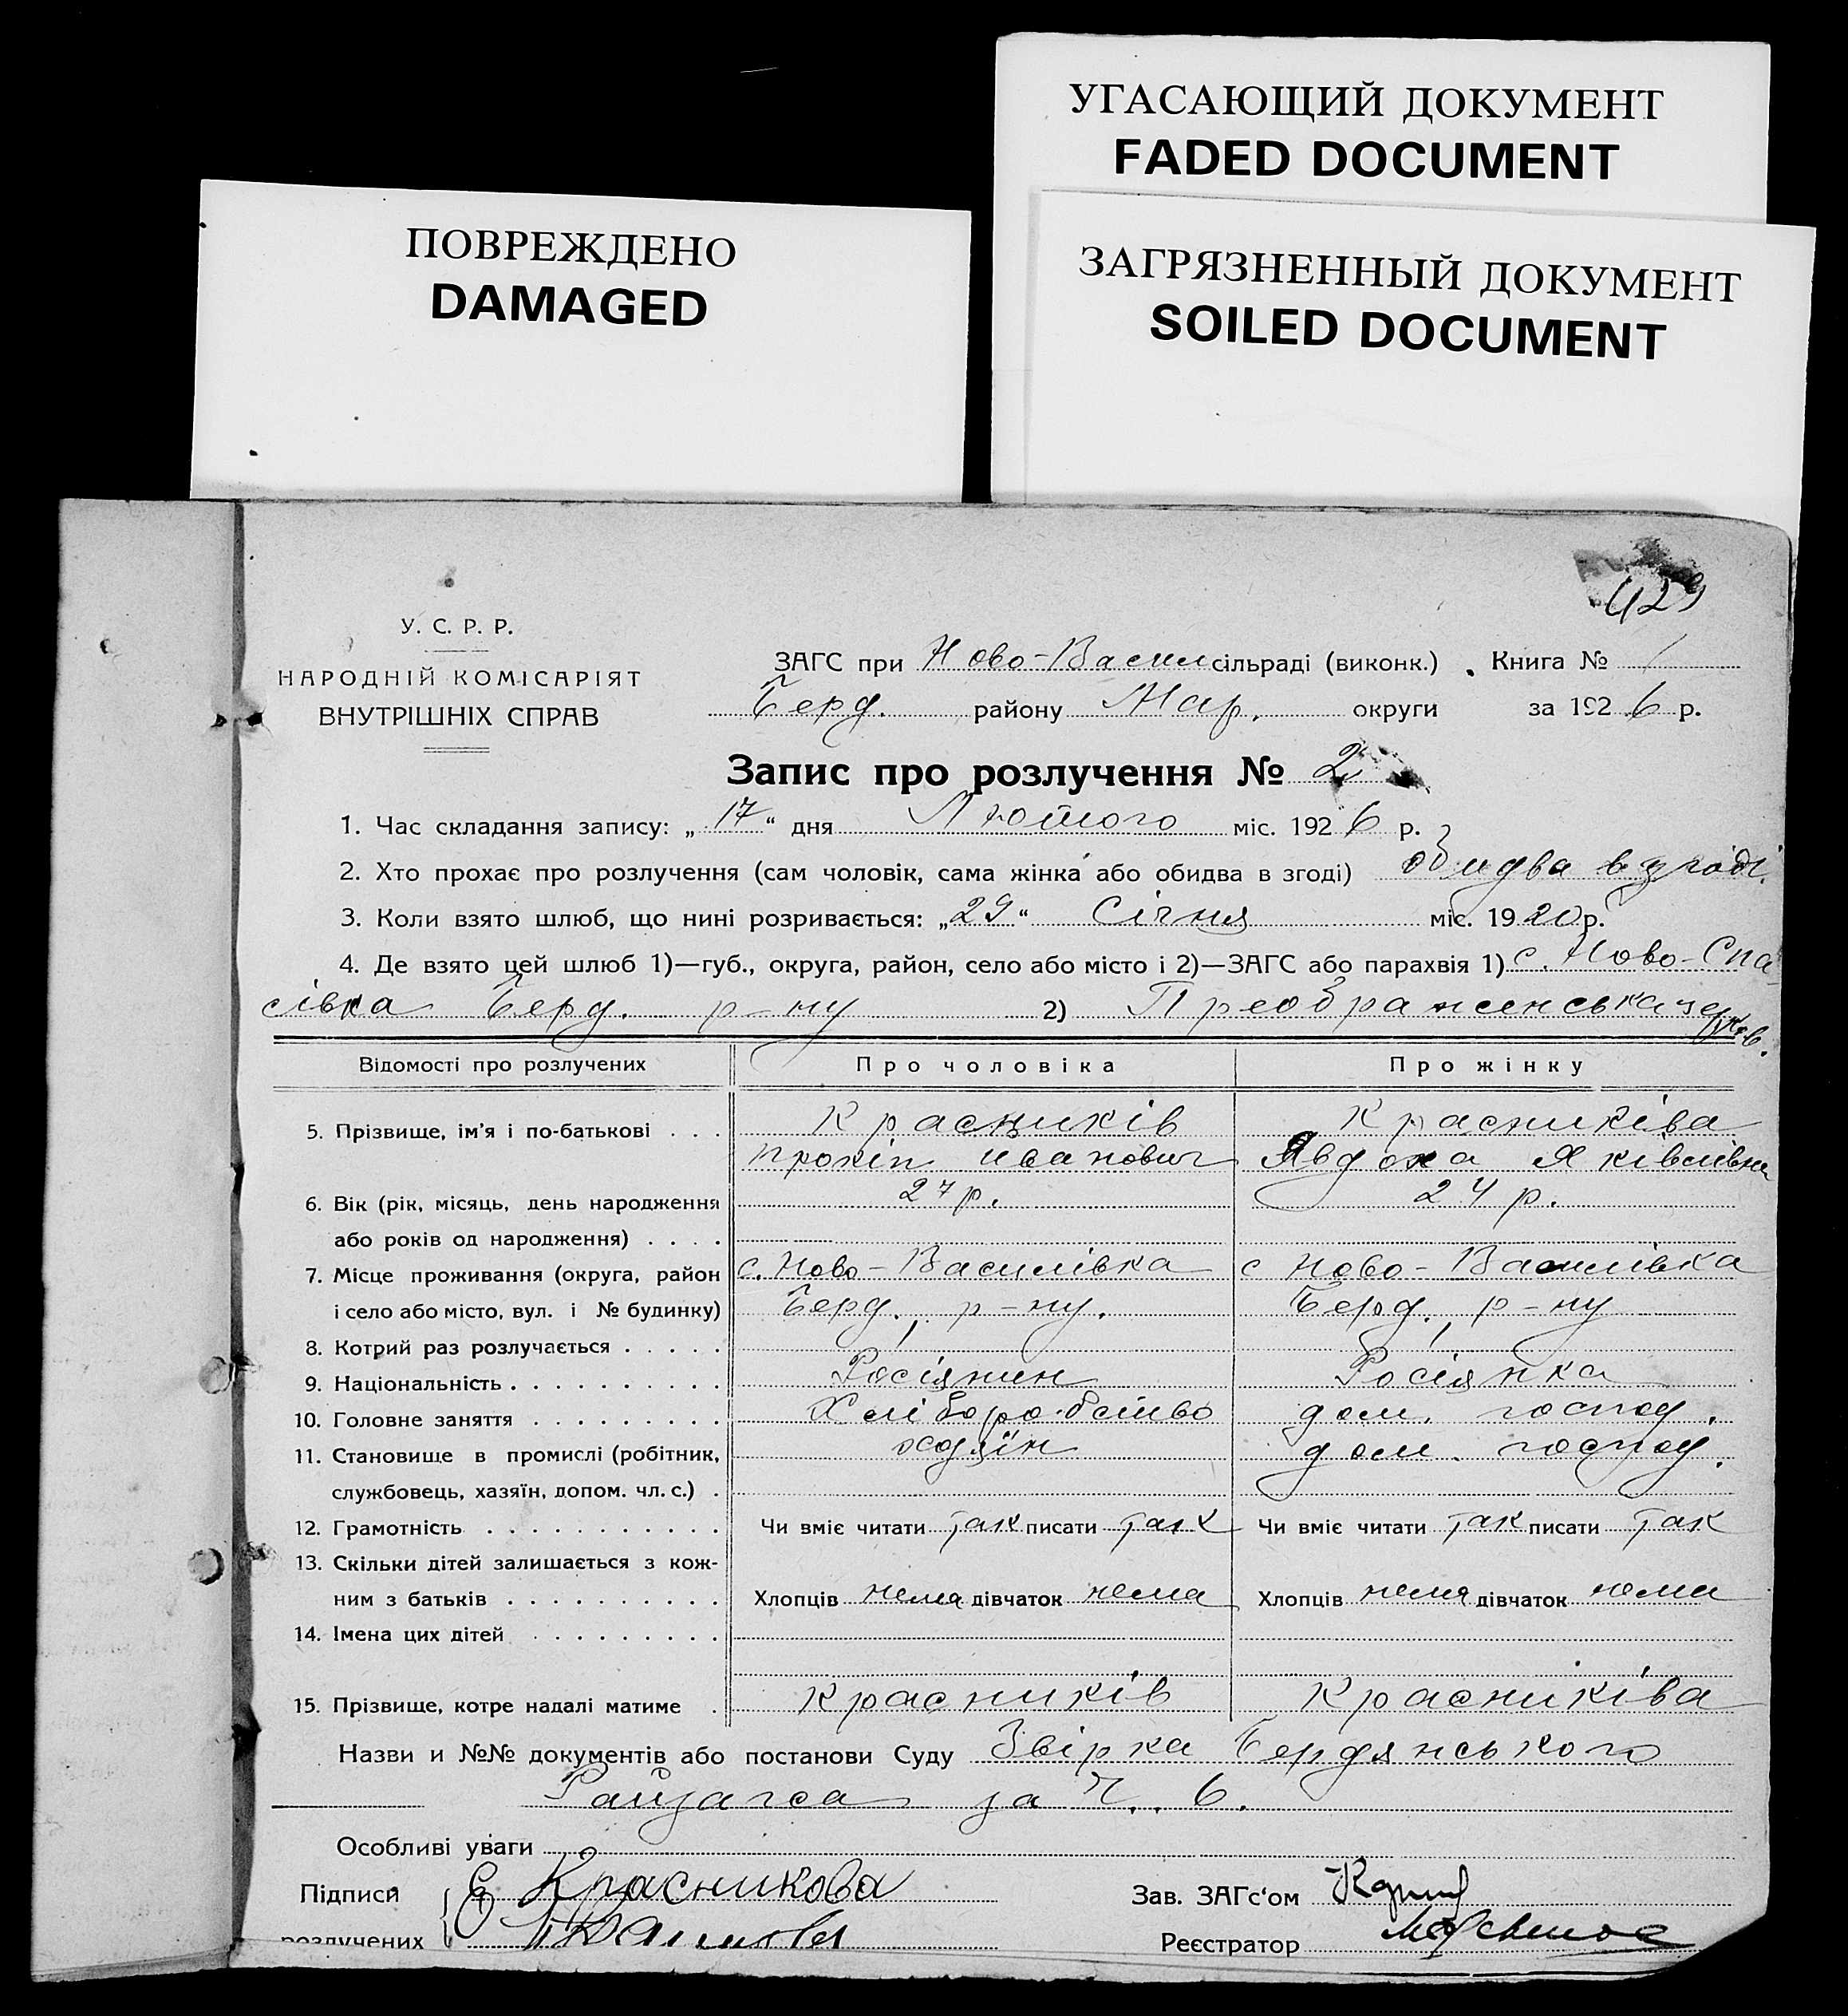 УГАСАЮЩИЙ ДОКУМЕНТ
FADED DOCUMENT
ПОВРЕЖДЕНО
DAMAGED
ЗАГРЯЗНЕННЫЙ ДОКУМЕНТ
SOILED DOCUMENT
429
У. С. Р. Р.
НАРОДНІЙ КОМІСАРІЯТ
ВНУТРІШНІХ СПРАВ
ЗАГС при Ново-Васил сільраді (виконк.) Книга № 1
Берд. району Мар. округи за 1926 р.
Запис про розлучення № 2
1. Час складання запису: „17“ дня Лютого міс. 1926 р.
2. Хто прохає про розлучення (сам чоловік, сама жінка або обидва в згоді) обидва в згоді
3. Коли взято шлюб, що нині розривається: „29“ Січня міс. 1920 р.
4. Де взято цей шлюб 1)—губ., округа, район, село або місто і 2)—ЗАГС або парахвія 1) с. Ново-Спа-
сівка Берд. р-ну 2) Преображенська церков.
Відомості про розлучених Про чоловіка Про жінку
5. Прізвище, ім'я і по-батькові . . . Красників Красниківа
Прокіп Иванович Явдоха Яківлівна
6. Вік (рік, місяць, день народження 27 р. 24 р.
або років од народження) . . . .
7. Місце проживання (округа, район с. Ново-Василівка с Ново-Василівка
і село або місто, вул. і № будинку) Берд. р-ну. Берд. р-ну
8. Котрий раз розлучається . . . . . 1 1
9. Національність . . . . . . . . . . Росіянин Росіянка
10. Головне заняття . . . . . . . . . Хліборобство дом. господ.
11. Становище в промислі (робітник, хазяїн дом. господ.
службовець, хазяїн, допом. чл. с.) .
12. Грамотність . . . . . . . . . . . Чи вміє читати так писати так Чи вміє читати так писати так
13. Скільки дітей залишається з кож-
ним з батьків . . . . . . . . . . Хлопців нема дівчаток нема Хлопців нема дівчаток нема
14. Імена цих дітей . . . . . . . . .
15. Прізвище, котре надалі матиме . Красників Красниківа
Назви и №№ документів або постанови Суду Звірка Бердянського
Райзагса за Ч. 6.
Особливі уваги
Підписи Е Красникова Зав. ЗАГс'ом
розлучених Реєстратор